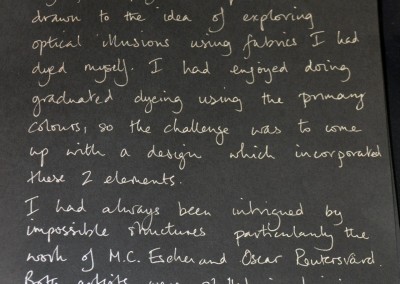 drawn to the idea of exploring
optical illusions using fabrics I had
dyed myself. I had enjoyed doing
graduated dyeing using the primary
colours, so the challenge was to come
up with a design which incorporated
these 2 elements.
I had always been intrigued by
impossible structures particularly the
work of M.C. Escher and Oscar Reutersvärd.
Both artists were